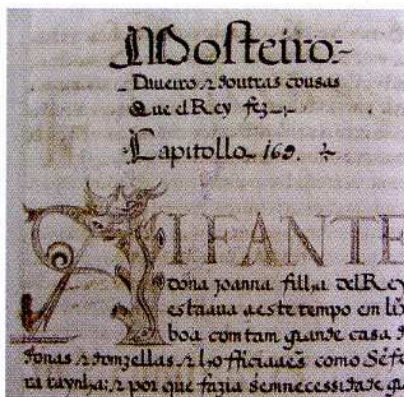 Mosteiro
Daveiro ⁊ doutras cousas
Que el Rey fez
Capitollo 169.
A IFANTE
dona joanna filha delRey
estaua aeste tempo em lix
boa com tam grande casa d
donas ⁊ donzellas, ⁊ hofficiaães como Sefo
ra raynha; ⁊ por que fazia semnecessidade g